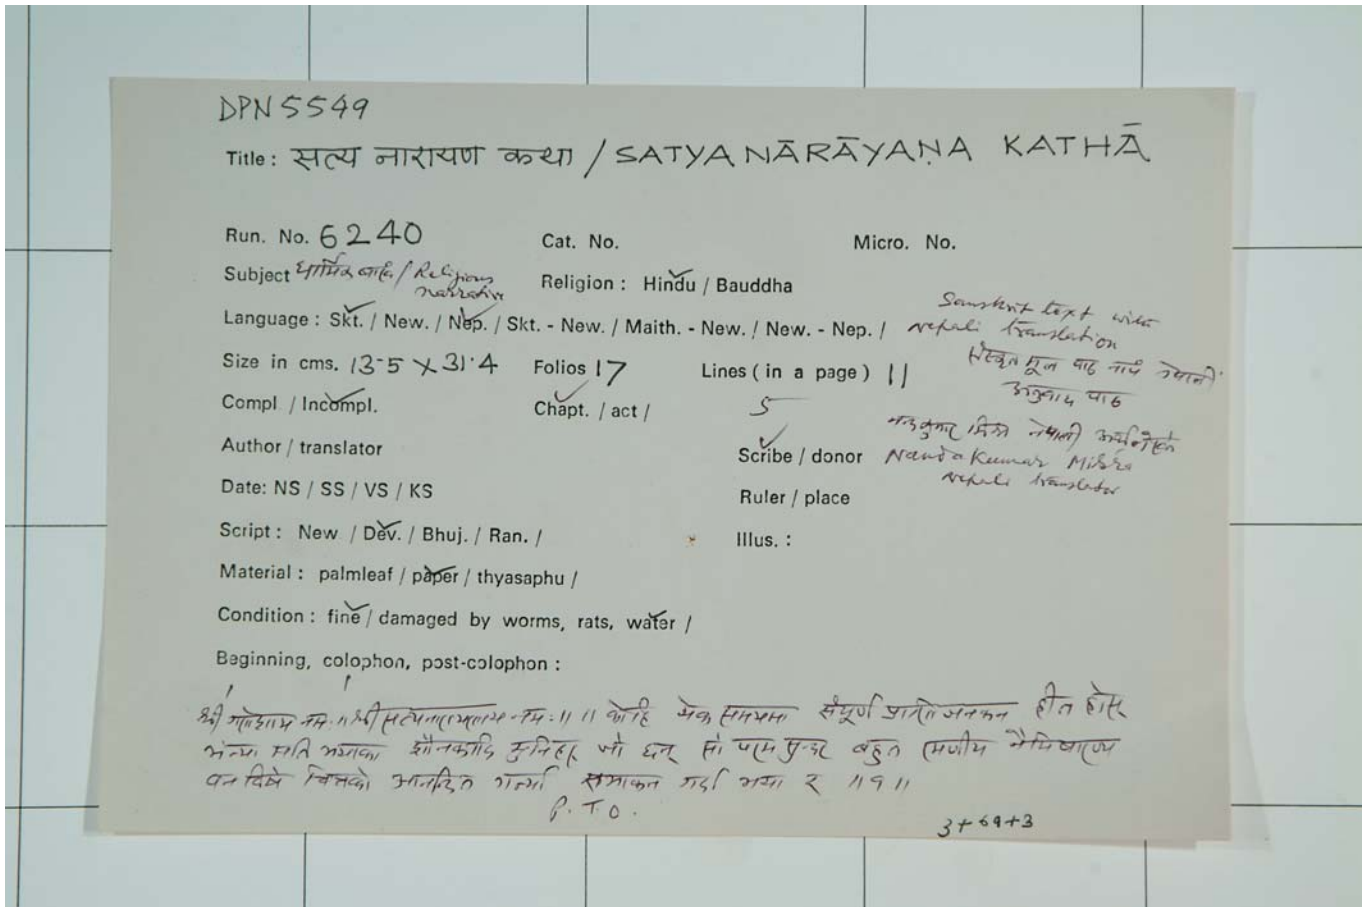 DPN 5549
Title: सत्य नारायण कथा / SATYA NĀRĀYAṆA KATHĀ
Run. No. 6240 Cat. No. Micro. No.
Subject धार्मिक / Religious narrative Religion : Hindu / Bauddha
Language : Skt. / New. / Nep. / Skt. - New. / Maith. - New. / New. - Nep. / Sanskrit text with
nepali translation
Size in cms. 13.5 X 31.4 Folios 17 Lines ( in a page ) 11
संस्कृत मूल पाठ नेपाली
अनुवाद पाठ
Compl / Incompl. Chapt. / act / 5
नन्दकुमार मिश्र नेपाली
Author / translator Scribe / donor Nanda Kumar Mishra
nepali translator
Date: NS / SS / VS / KS Ruler / place
Script : New / Dev. / Bhuj. / Ran. / Illus. :
Material : palmleaf / paper / thyasaphu /
Condition : fine / damaged by worms, rats, water /
Beginning, colophon, post-colophon :
श्री गणेशाय नमः ॥ श्री सत्यनारायणाय नमः ॥ ॥ कोहि येक समयमा संपूर्ण हीत होस्
भन्या मति भयाका शौनकादि मुनिहरू जो छन् सो परम सुन्दर बहुत रमणीय नैमिषारण्य
वन विषे चित्तको आनन्दित गर्न्या गर्दा भया र ॥१॥
P. T. O.
3+69+3